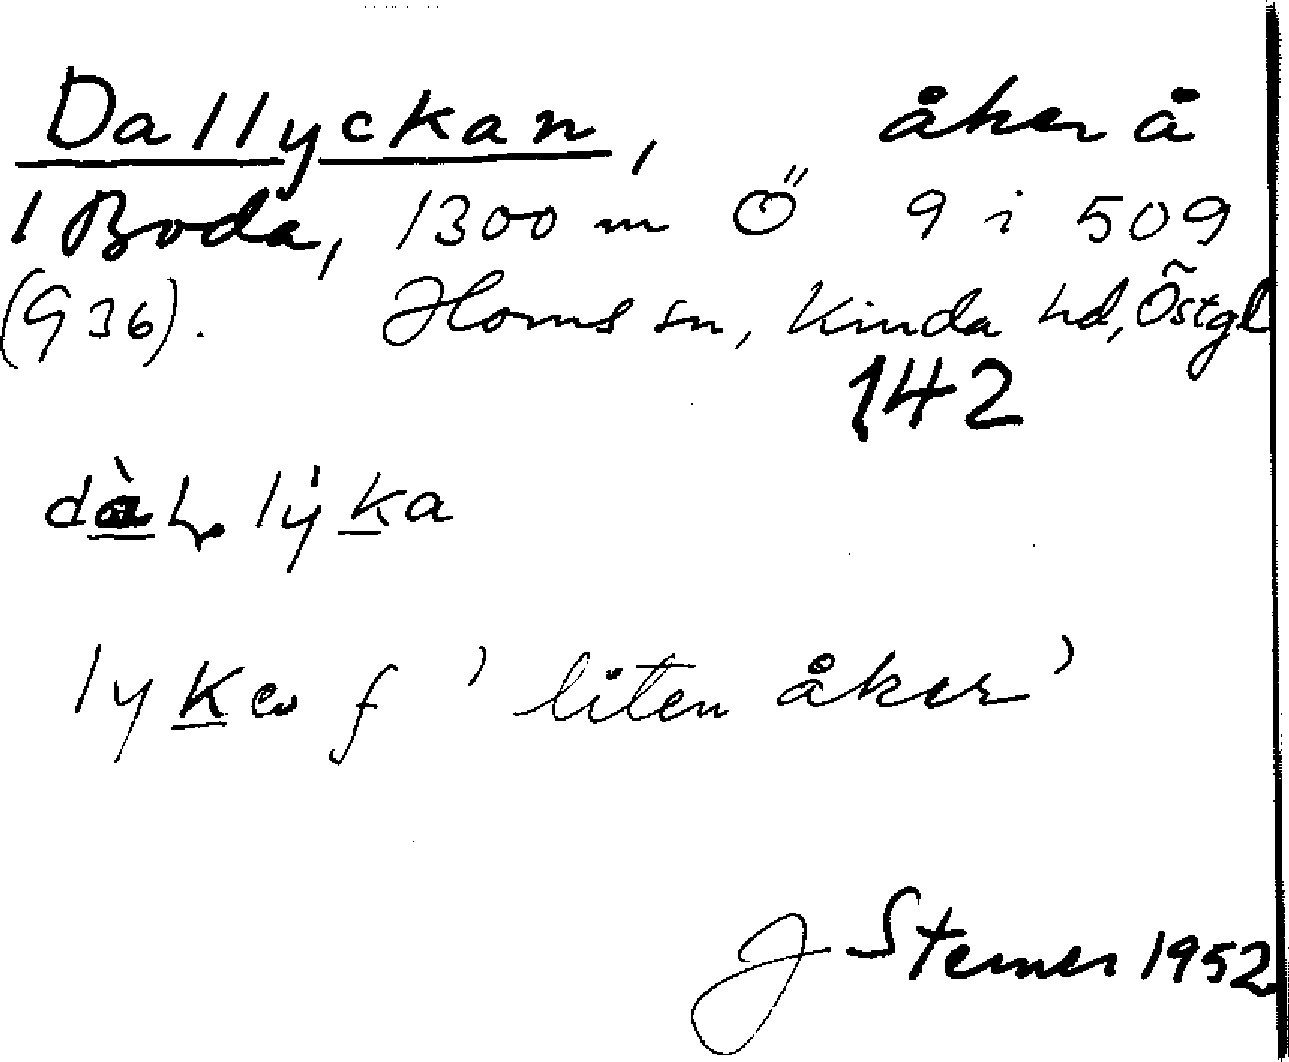 Dallyckan, åker å
1 Boda, 1300 m Ö 9 i 509
(936). Horns sn, Kinda hd, Östgl
142
lýka
lyka f 'liten åker'
J Sterner 1952